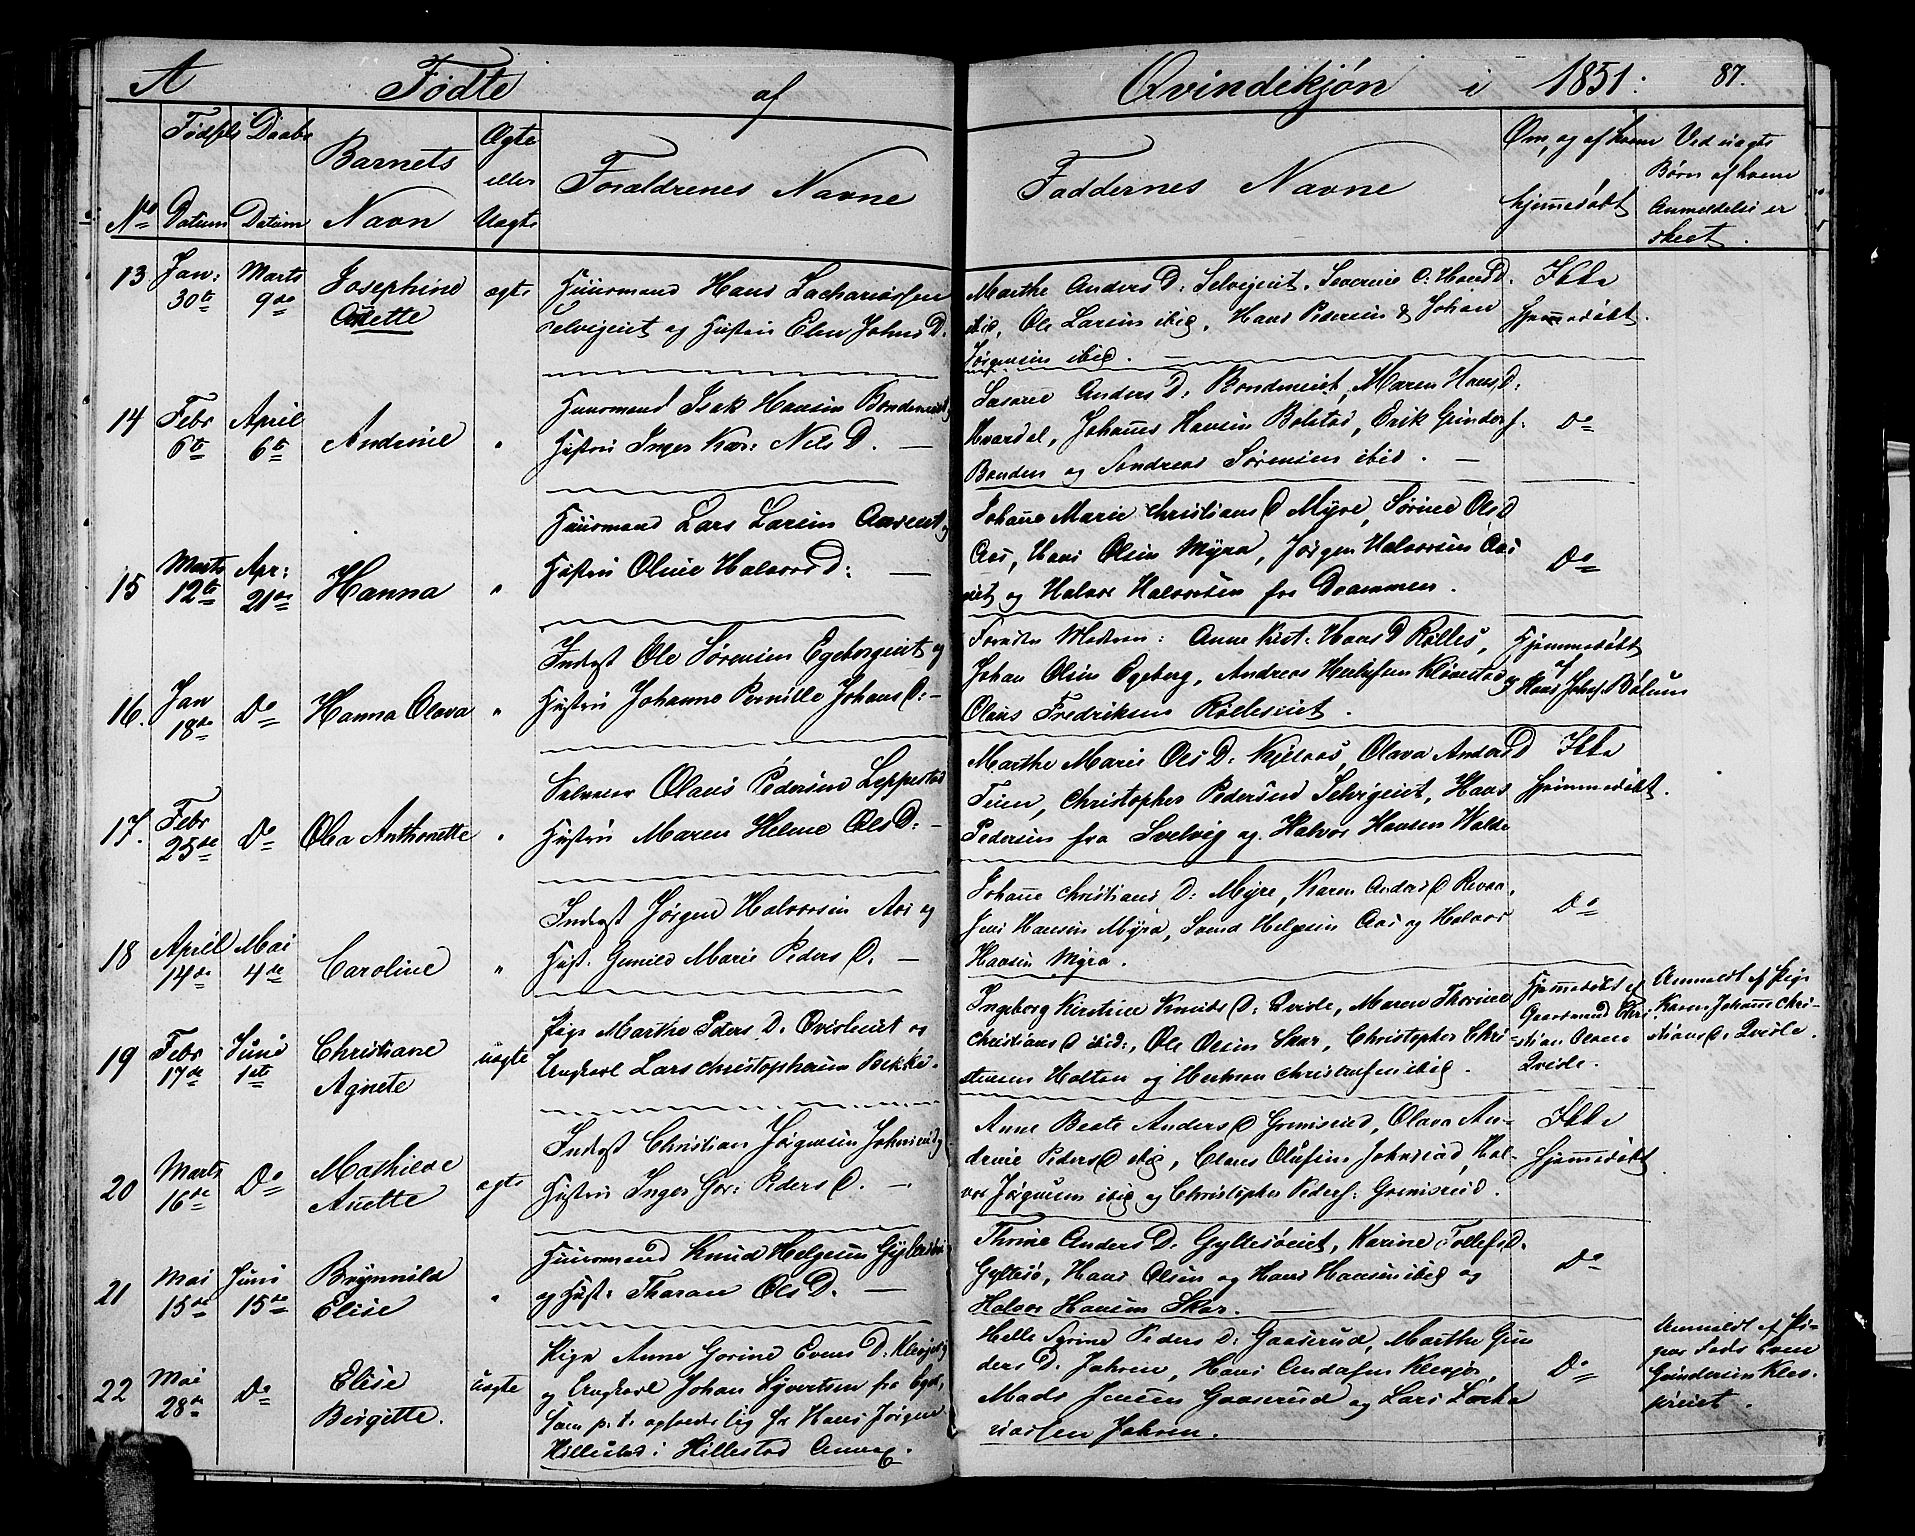 A Fødte af Qvindekjøn i 1851. 87.
No Fødsels Datum Daabs Datum Barnets Navn Ægte eller Uægte Forældrenes Navne Faddernes Navne Om, og af hvem hjemmedøbt Ved uægte Børn af hvem Anmeldelse er skeet.
13 Jan: 30te Marts 9de Josephine Anette ægte
Huusmand Hans Zachariassen
Selvigeiet og Hustru Elen Johns D.
Marthe Anders D: Selvigeiet, Severine O: Hans D.
ibid, Ole Larsen ibid, Hans Pedersen & Johan
Jørgensen ibid.
Ikke hjemmedøbt.
14 Febr 6te April 6te Andrine "
Huusmand Isak Hansen Bondeneiet,
Hustru Inger Kar: Nels D.
Anders D: Bondeneiet, Maren Hans D:
Hvardal, Johannes Hansen Bolstad, Erik Gunders.
Bonden og Andreas Sørensen ibid.
Do
15 Marts 12te Apr: 21de Hanna "
Huusmand Lars Larsen Aaseiet,
Hustru Oline Halvors D:
Johanne Marie Christians D Myre, Sørine Ols D
Aas, Hans Olsen Myra, Jørgen Halvorsen Aas
eiet og Halvor Halvorsen fra Drammen.
Do
16. Jan 18de Do Hanna Olava "
Inderst Ole Sørensen Egebergeiet og
Hustru Johanne Pernille Johans D:
Foruden Modren: Anne Kirst: Hans D Rølles,
Johan Olsen Egeberg, Andreas Kløvestad,
Olaus Fredriksen Rølleseiet.
Hjemmedøbt af Hans Johs. Bølum
17. Febr 25de Do Olea Anthonette "
Selveier Olaus Pedersen Leppestad
Hustru Maren Helene Ols D:
Marthe Marie Ols D: Kjelaas, Olava Anders D
Teien, Christopher Pedersen Selvigeiet, Hans
Pedersen fra Svelvig og Halvor Hansen Walde
Ikke hjemmedøbt.
18 April 14de Mai 4de Caroline "
Inderst Jørgen Halvorsen Aas og
Hust. Gunild Marie Peders D.
Johanne Christians D: Myre, Karen Anders D Revaa,
Jens Hansen Myra, Svend Helgesen Aas og Halvor
Hansen Myra.
Do
19 Febr 17de Juni 1st Christiane Agnete uægte
Pige Marthe Peders D: Qvisleiet og
Ungkarl Lars Christophersen Bekke.
Ingeborg Kirstine Knuds D: Qvisle, Maren Thorine
Christians D ibid:, Ole Olsen Skar, Christopher Chri-
stensen Holtan og Herman Christensen ibid.
Hjemmedøbt af Gaardmand Chri stian Olsen Qvisle.
Anmeldt af Pige Karen Johanne Chri- stians D. Qvisle.
20 Marts 16de Do Mathilde Anette ægte
Inderst Christian Jørgensen Johnsrud
Hustru Inger Gor: Peders D.
Anne Beate Anders D Grimsrud, Olava An-
drine Peders D ibid, Claus Olufsen Johnsrud, Hal-
vor Jørgensen ibid og Christopher Peders: Grimsrud.
Ikke hjemmedøbt.
21 Mai 15de Juni 15de Brynnild Elise "
Huusmand Knud Helgesen
og Hust: Tharan Ols D.
Thrine Anders D. Gyltesøeiet, Karine Tollefs D.
Gyltesø, Hans Olsen og Hans Hansen ibid og
Halvor Hansen Skar.
Do
22 Mai 28de Do Elise Birgitte. uægte
Pige Anne Gorine Evens D:
og Ungkarl Johan Syvertsen fra
som p. t. opholder sig hr Hans Jørgen
Hillestad i Hillestad Annex.
Helle Serine Peders D: Gaaserud, Marthe Gun
ders D. Jahren, Hans
Mads Jensen Gaaserud og Lars Zacha
riassen Jahren.
Do
Anmeldt af Pi- gens Fader Even Gundersen